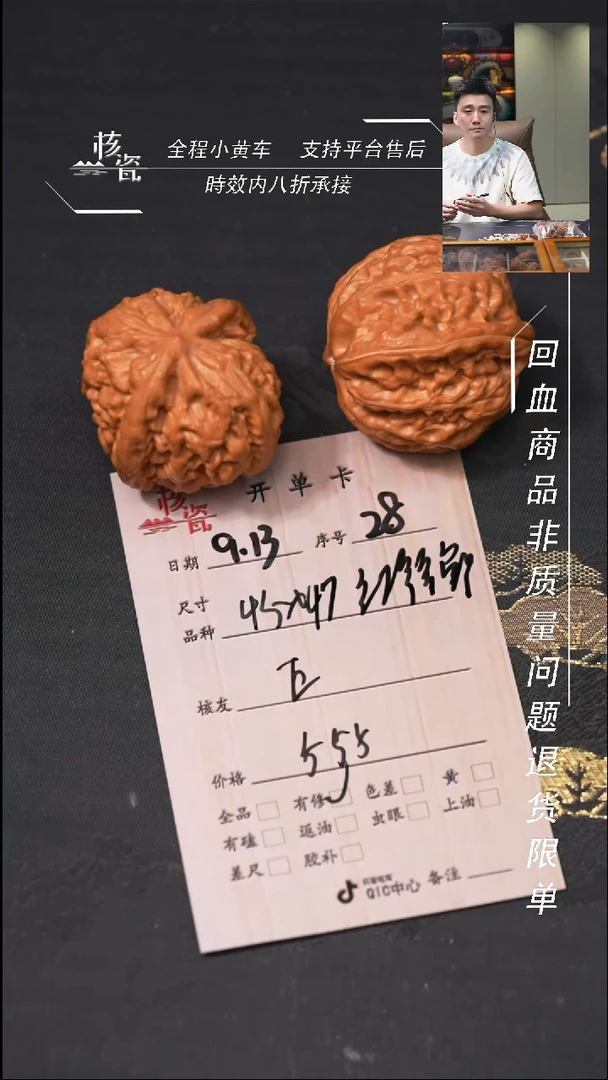 核瓷
全程小黄车 支持平台售后
時效内八折承接
回血商品非质量问题退货限单
核瓷
开单卡
日期 9.13 序号 28
尺寸
品种 45×47
核友
价格 555
全品 有修 色差 黄
有磕 返油 虫眼 上油
差尺 胶补
QIC中心 备注